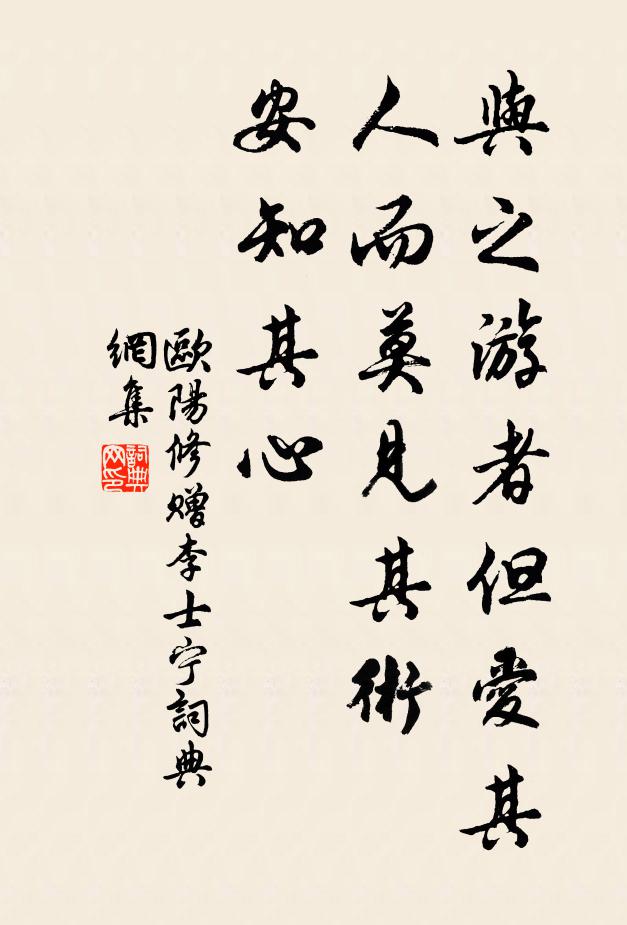 與之游者但愛其
人而莫見其術
安知其心
歐陽修贈李士宁詞典
網集
詞典
网印